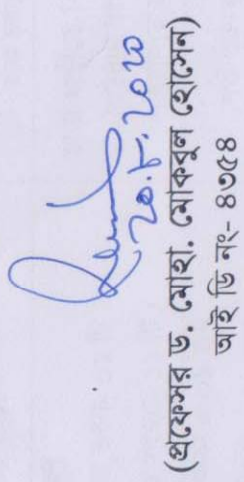 ২০.৮.২০২০
(প্রফেসর ড. মোহা. মোকবুল হোসেন)
আই ডি নং- ৪৩৫৪